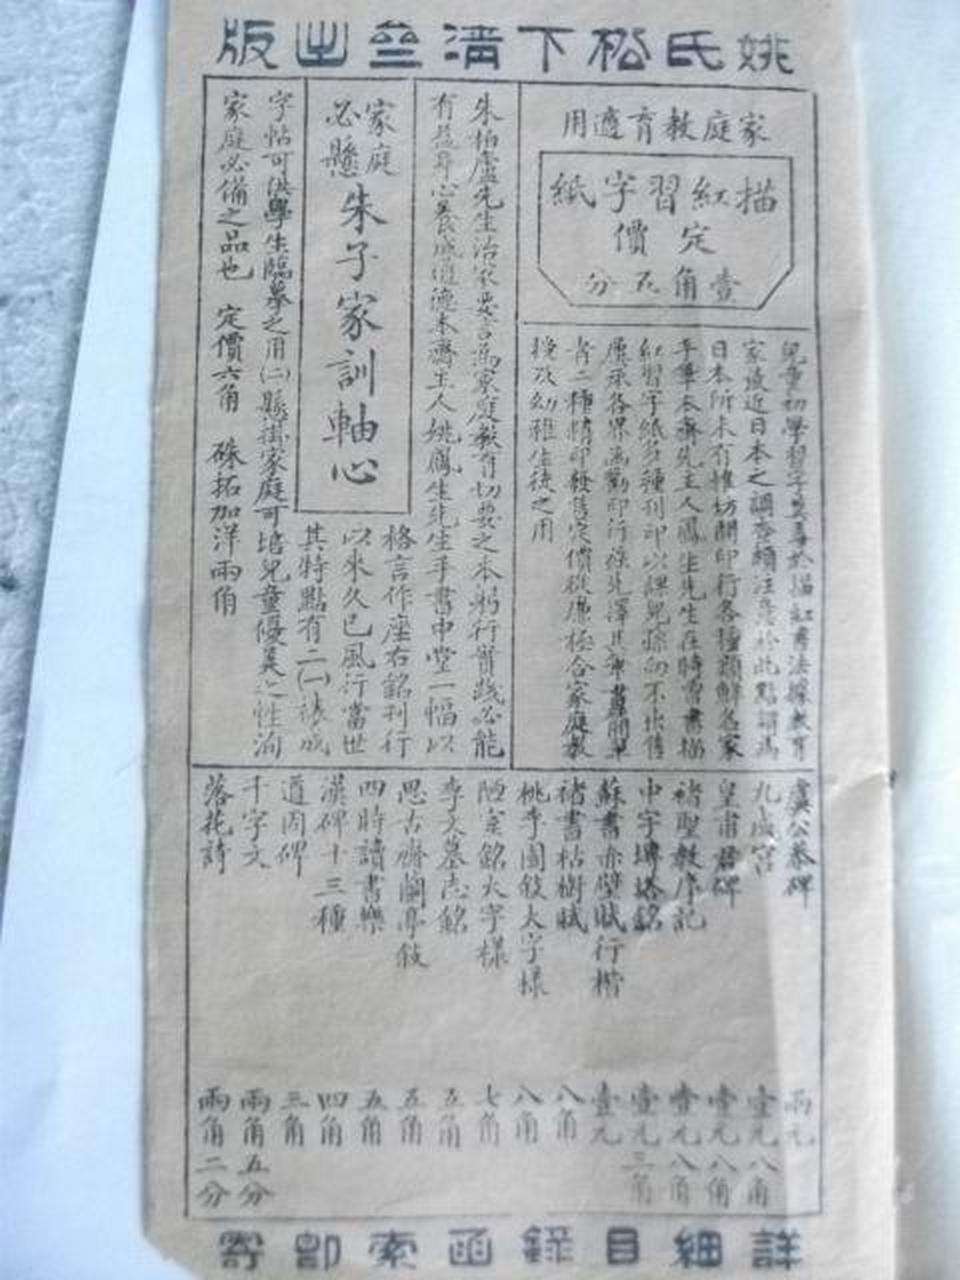 姚氏松下清齋出版
家庭教育適用
描紅習字紙
定價
壹角五分
兒童初學習字莫善於描紅書法據教育
家最近日本之調查頗注意於此點謂為
日本所未有惟坊間印行各種頗鮮名家
手筆本齋先主人鳳生先生在時曾書描
紅習字紙多種刊印以課兒孫向不出售
屢承各界函勸印行條先澤其年書簡單
者二種精印發售定價從廉極合家庭教
授及幼稚生徒之用
朱柏廬先生治家要言為家庭教育切要之本躬行實踐必能
有益身心養成道德本齋主人姚鳳生先生手書中堂一幅以
家庭
必懸
朱子家訓軸心
格言作座右銘刊行
以來久已風行當世
其特點有二(一)裱成
字帖可供學生臨摹之用(二)懸掛家庭可培兒童優美之性洵
家庭必備之品也 定價六角 硃拓加洋兩角
虞公恭碑 兩元
九成宮 壹元八角
皇甫君碑 壹元八角
褚聖教序記 壹元八角
中字磚塔銘 壹元三角
蘇書赤壁賦行楷 壹元
褚書枯樹賦 八角
桃李園敘大字樣 八角
陋室銘大字樣 七角
李文墓志銘 五角
思古齋蘭亭敘 五角
四時讀書樂 五角
漢碑十三種 四角
道因碑 三角
千字文 兩角五分
落花詩 兩角二分
詳細目錄函索即寄